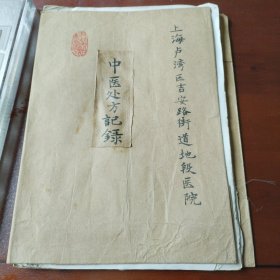 上海卢湾区吉安路街道地段医院
中医处方記録